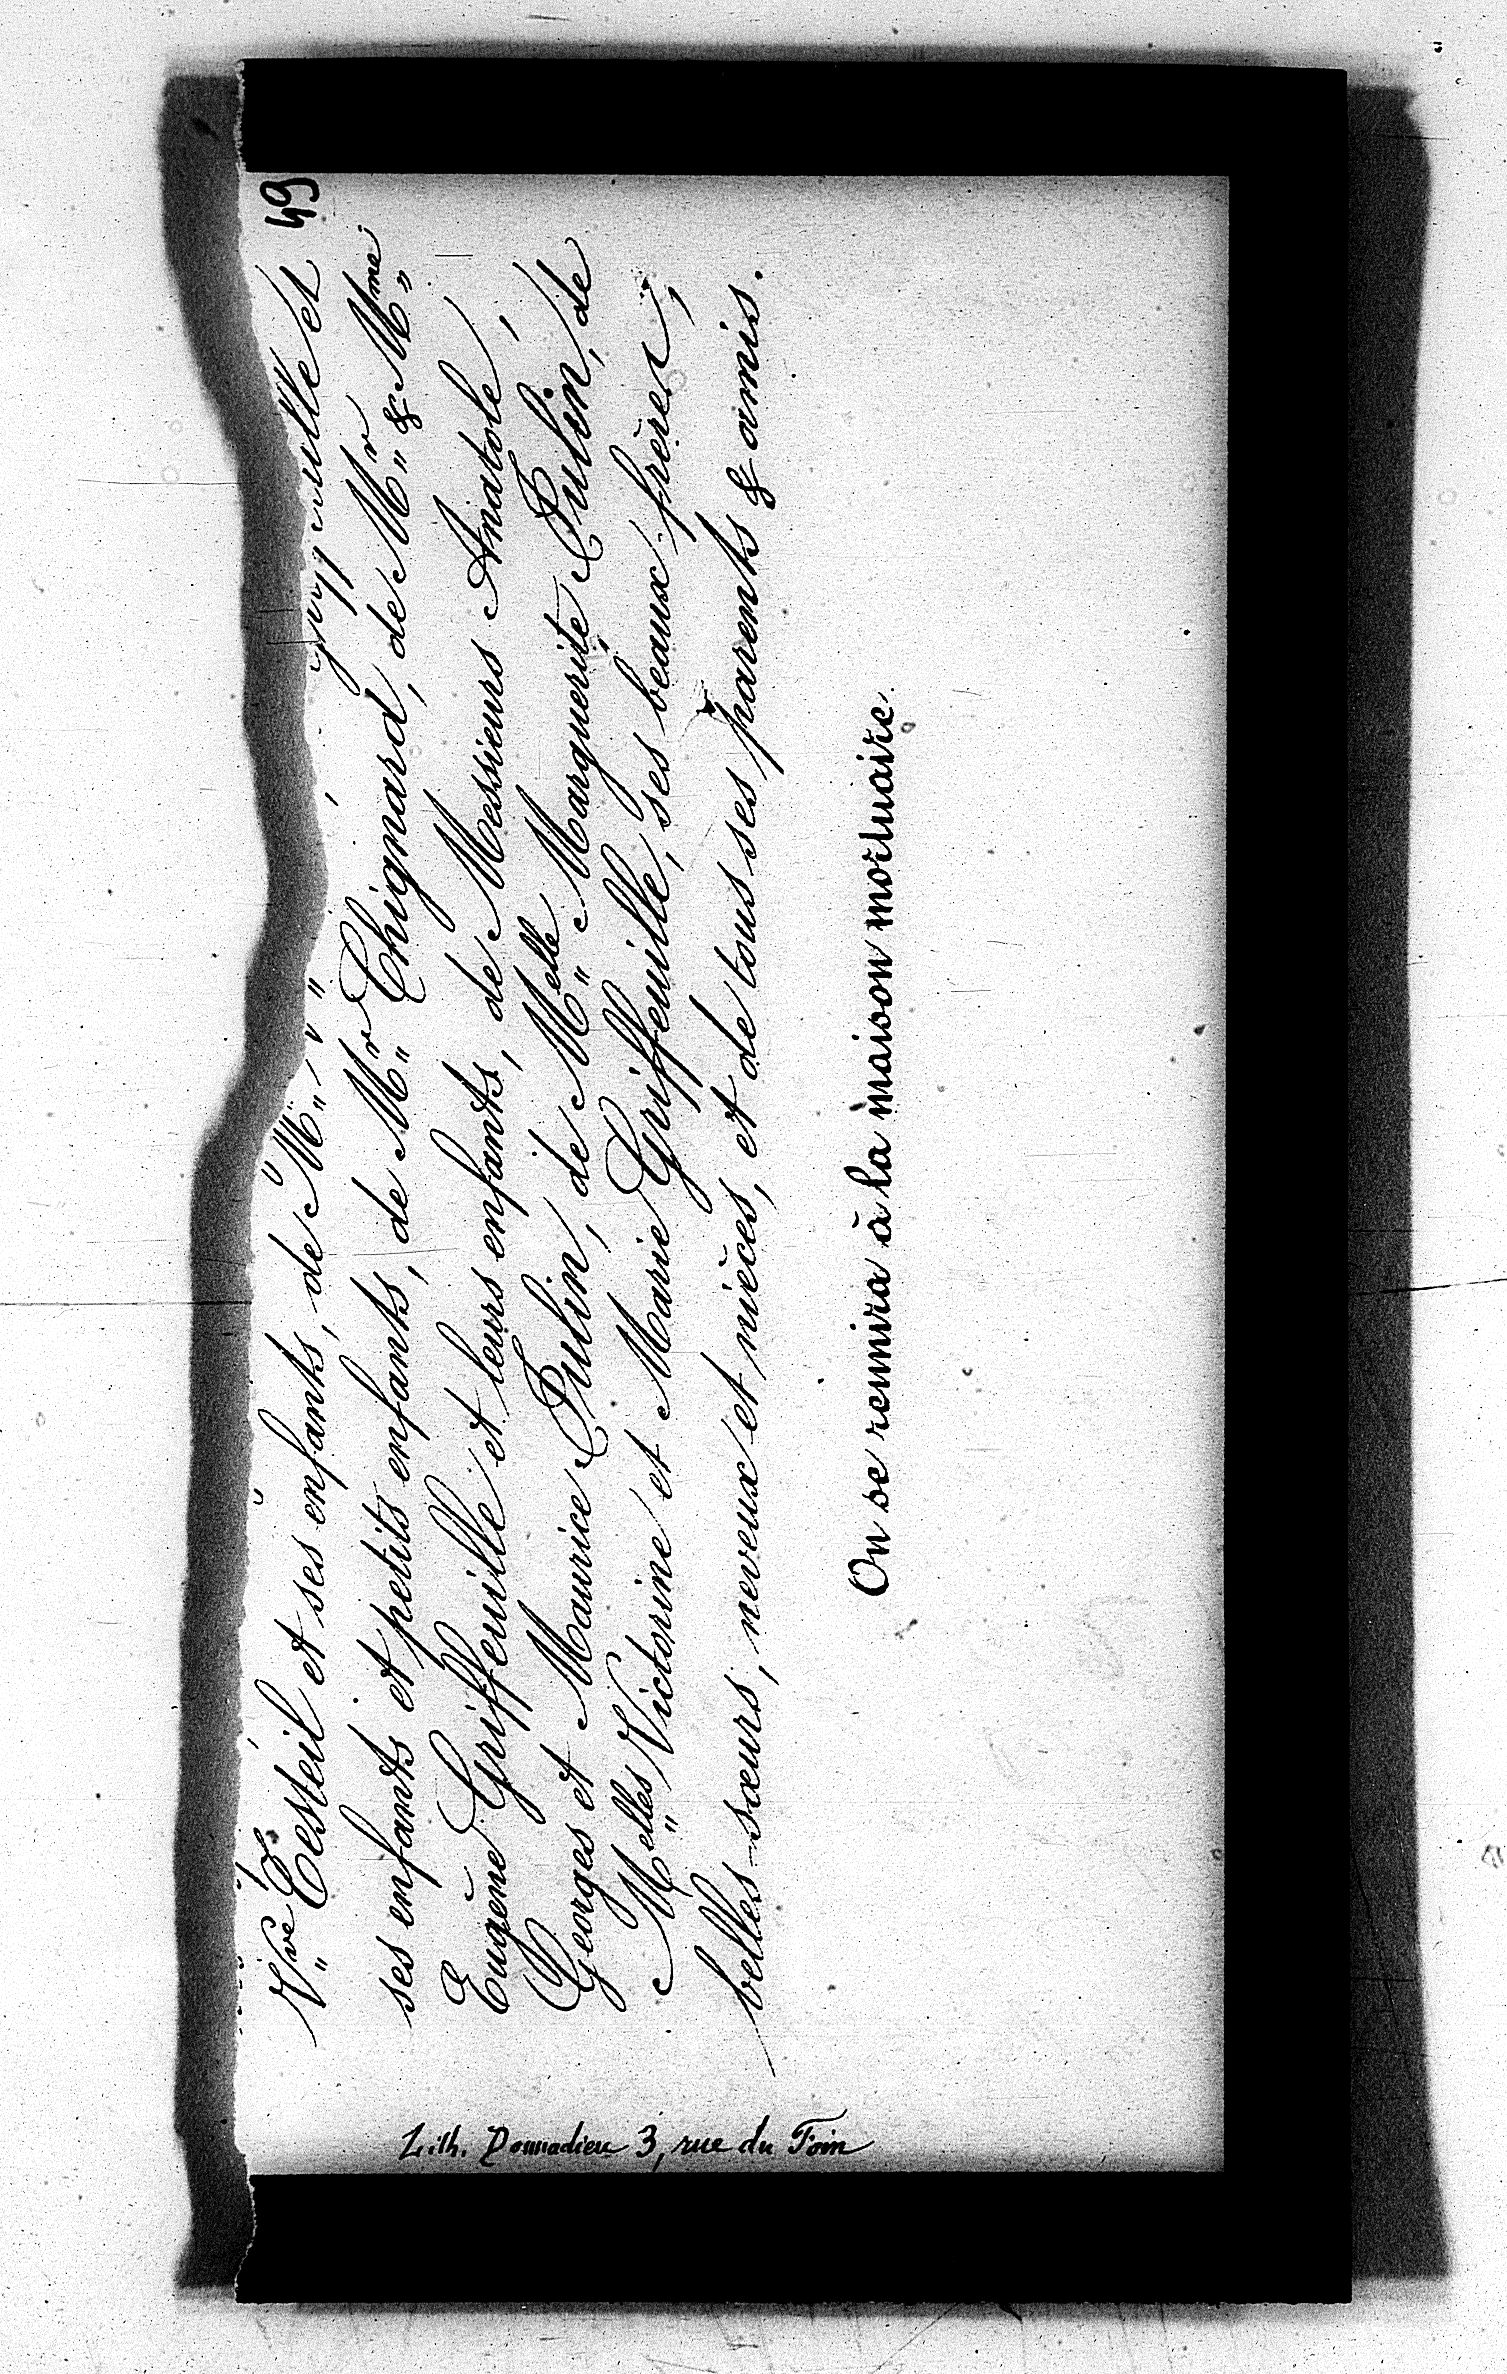 49
Vve Testeil et ses enfants, de M et
ses enfants et petits enfants, de Mr Chignard, de Mr & Mme
Eugène Griffeuille et leurs enfants, de Messieurs Anatole,
Georges et Maurice Pulin, de Melle Marguerite Pulin, de
Melles Victorine et Marie Griffeuille, ses beaux-frères,
belles-sœurs, neveux et nièces, et de tous ses parents & amis.
On se réunira à la maison mortuaire.
Lith. Donnadieu 3, rue du Foin